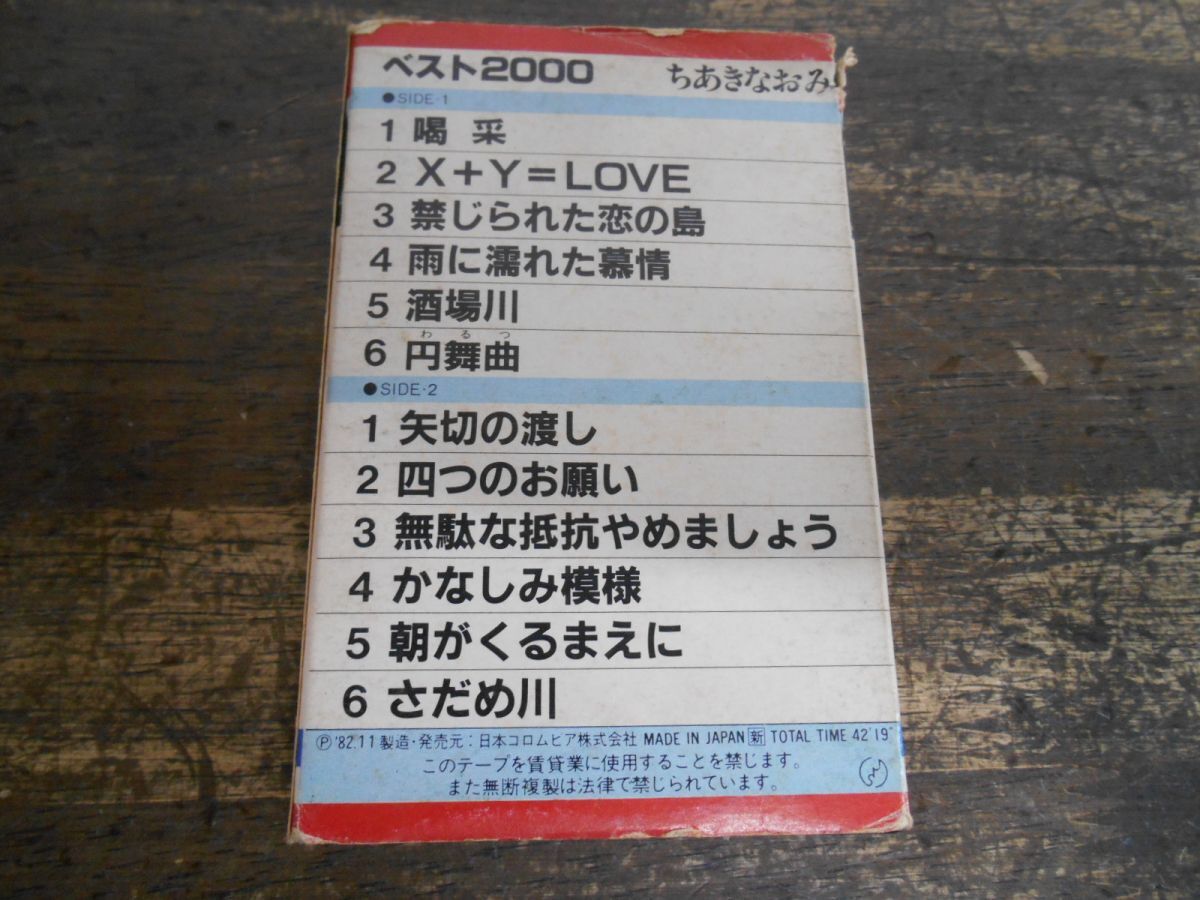 ベスト2000 ちあきなおみ
●SIDE-1
1 喝采
2 X+Y=LOVE
3 禁じられた恋の島
4 雨に濡れた慕情
5 酒場川
わるつ
6 円舞曲
●SIDE-2
1 矢切の渡し
2 四つのお願い
3 無駄な抵抗やめましょう
4 かなしみ模様
5 朝がくるまえに
6 さだめ川
Ⓟ'82.11 製造・発売元:日本コロムビア株式会社 MADE IN JAPAN 新 TOTAL TIME 42'19"
このテープを賃貸業に使用することを禁じます。
また無断複製は法律で禁じられています。